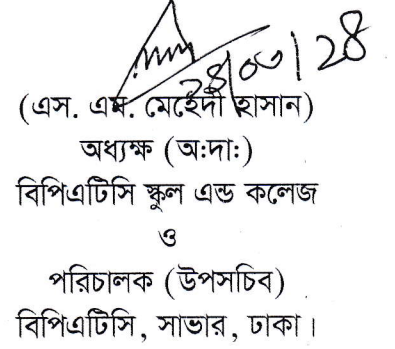 ২৪/০৩/২৪
(এস. এম. মেহেদী হাসান)
অধ্যক্ষ (অ:দা:)
বিপিএটিসি স্কুল এন্ড কলেজ
ও
পরিচালক (উপসচিব)
বিপিএটিসি, সাভার, ঢাকা।